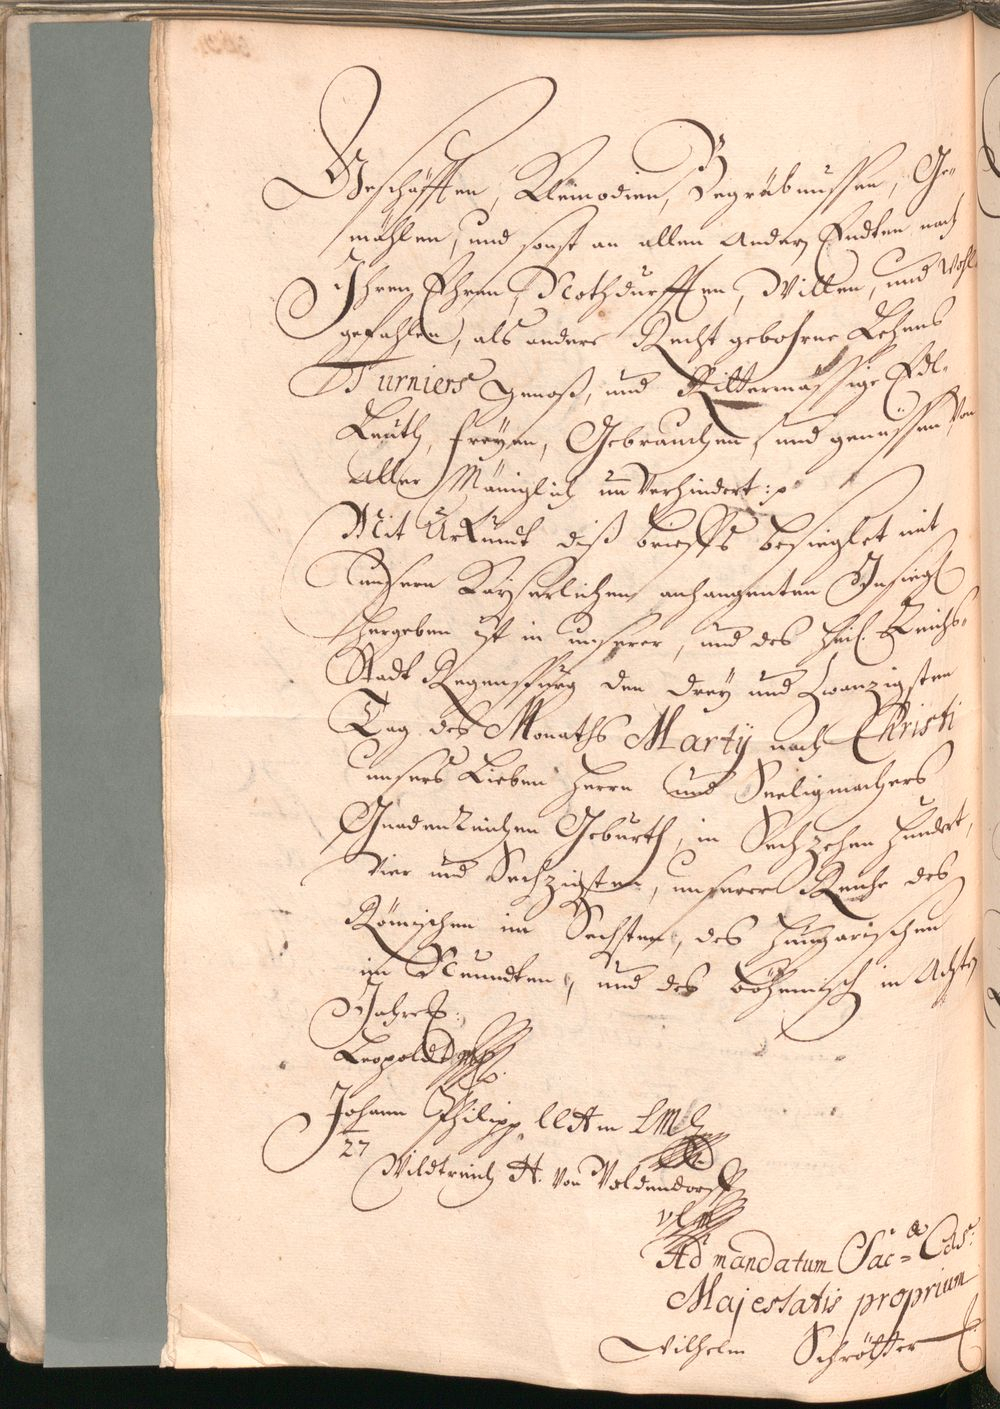 Geschäfften, Kleinodien, Begräbnussen, Ge-
mählen, und sonst an allen andern Endten nach
Ihren Ehren, Nothdurfften, Willen, und Wohl
gefahlen, als andere Recht gebohrne Lehens
Turniers genoß, und Rittermässige Edl-
Leuth, freyen, Gebrauchen, und genüssen, Von
aller Mäniglich unverhindert:
Mit Urkundt diß brieffs besieglet mit
unsern Kayserlichen anhangenten Insiegl
hergeben ist in unserer, und des Heil. Reichs-
Stadt Regenspurg den drey und zwanzigsten
Tag des Monaths Martÿ nach Christi
unsers Lieben Herrn und Seeligmachers
Gnadenreichen Geburth, in Sechzehen Hundert,
Vier und Sechzigsten, unserer Reiche des
Römischen im Sechsten, des Hungarischen
im Neundten, und des böhemisch in Achten
Jahre:
Leopoldt
Johann Philipp
27
Wildtreich H. von Woldendorff
Ad mandatum Sac=ae Caes:
Majestatis proprium
Wilhelm Schrötter